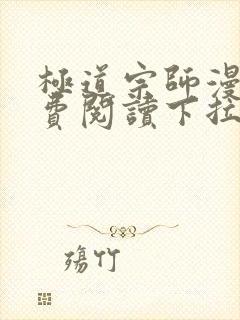 極道宗師漫
費閱讀下拉
殤竹